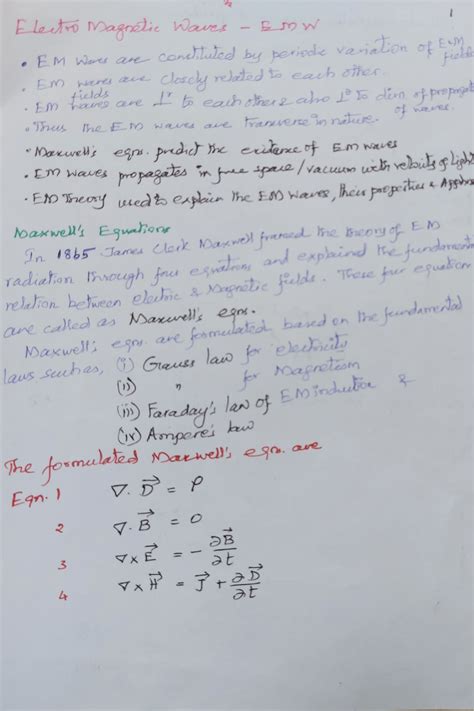 1
Electro Magnetic Waves - EMW
• EM Waves are constituted by periodic variation of E&M fields
• EM waves are closely related to each other.
fields
• EM waves are ⊥r to each other & also ⊥r to dirn. of propagat
of waves.
• Thus the EM waves are tranverse in nature.
• Maxwell's eqns. predict the existence of EM waves
• EM waves propagates in free space/vacuum with velocity of light
• EM Theory used to explain the EM waves, their properties &
Maxwell's Equations
In 1865 James Clerk Maxwell framed the theory of EM
radiation through four equations and explained the fundament
relation between electric & Magnetic fields. These four equation
are called as Maxwell's eqns.
Maxwell's eqns. are formulated based on the fundamental
laws such as, (i) Gauss law for electricity
(ii) " for Magnetism
(iii) Faraday's law of EM induction &
(iv) Ampere's law
The formulated Maxwell's eqns. are
Eqn. 1 ∇. D⃗ = ρ
2 ∇. B⃗ = 0
3 ∇ × E⃗ = - ∂B⃗/∂t
4 ∇ × H⃗ = J⃗ + ∂D⃗/∂t